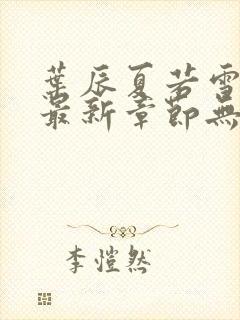 葉辰夏若雪
最新章節無
李愷然